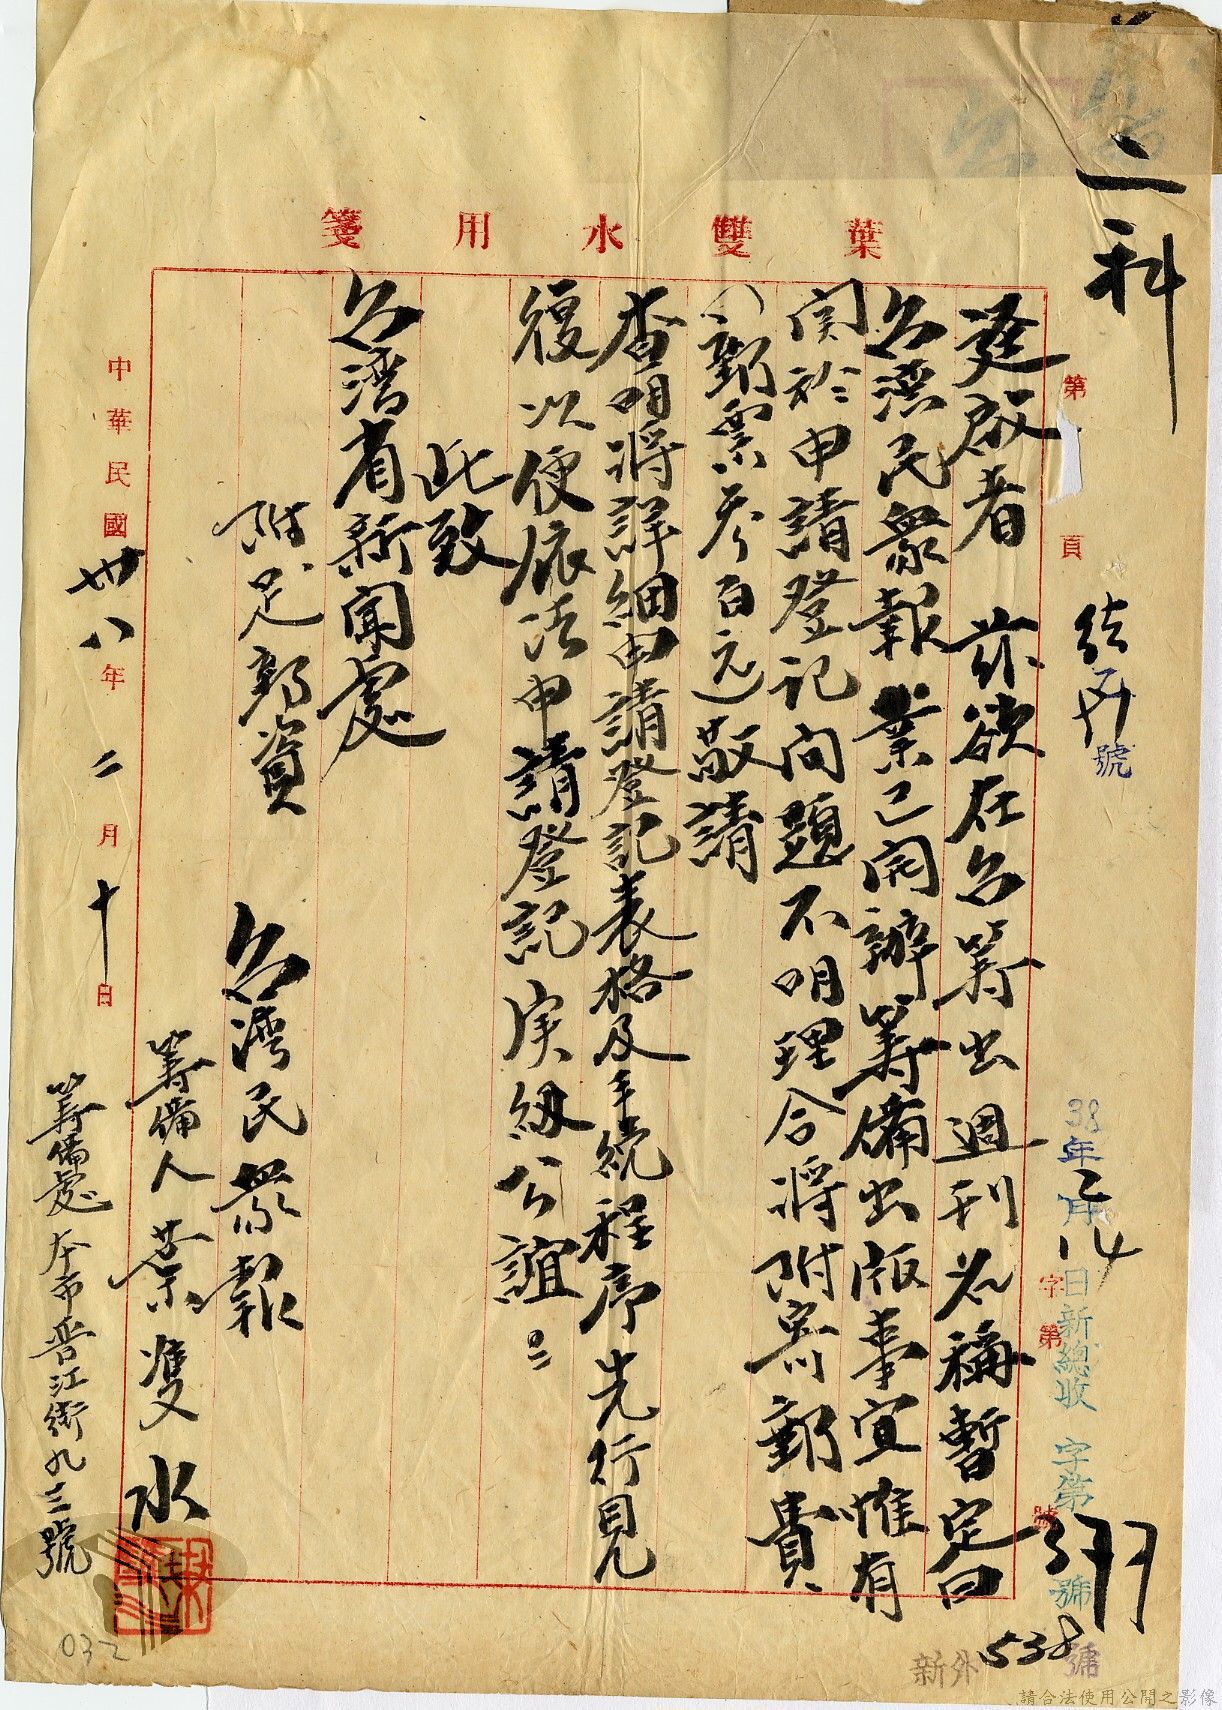 葉雙水用箋
二科
第 頁
號
逕啟者 茲欲在台籌出週刊名稱暫定曰
台湾民衆報業已開辦籌備出版事宜惟有
関於申請登記问題不明理合将附寄郵費
(郵票叁百元)敬請
查明将詳細申請登記表格及手続程序先行見
復以便依法申請登記実級公誼。
此致
台湾省新聞處
附足郵資
台灣民衆報
籌備人葉雙水
中華民國卅八年二月十日
籌備處本市晋江街九三號
38年2月14日新總收 字第577號
字第 號
新外 538 號
032
請合法使用公開之影像